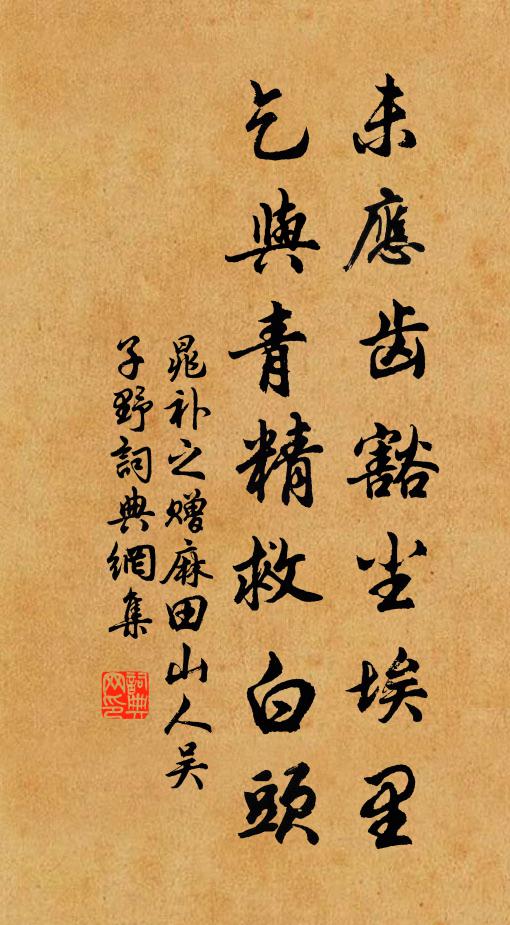 未應齿豁尘埃里
乞與青精救白頭
晁补之赠麻田山人吴
子野詞典網集
詞典
网印